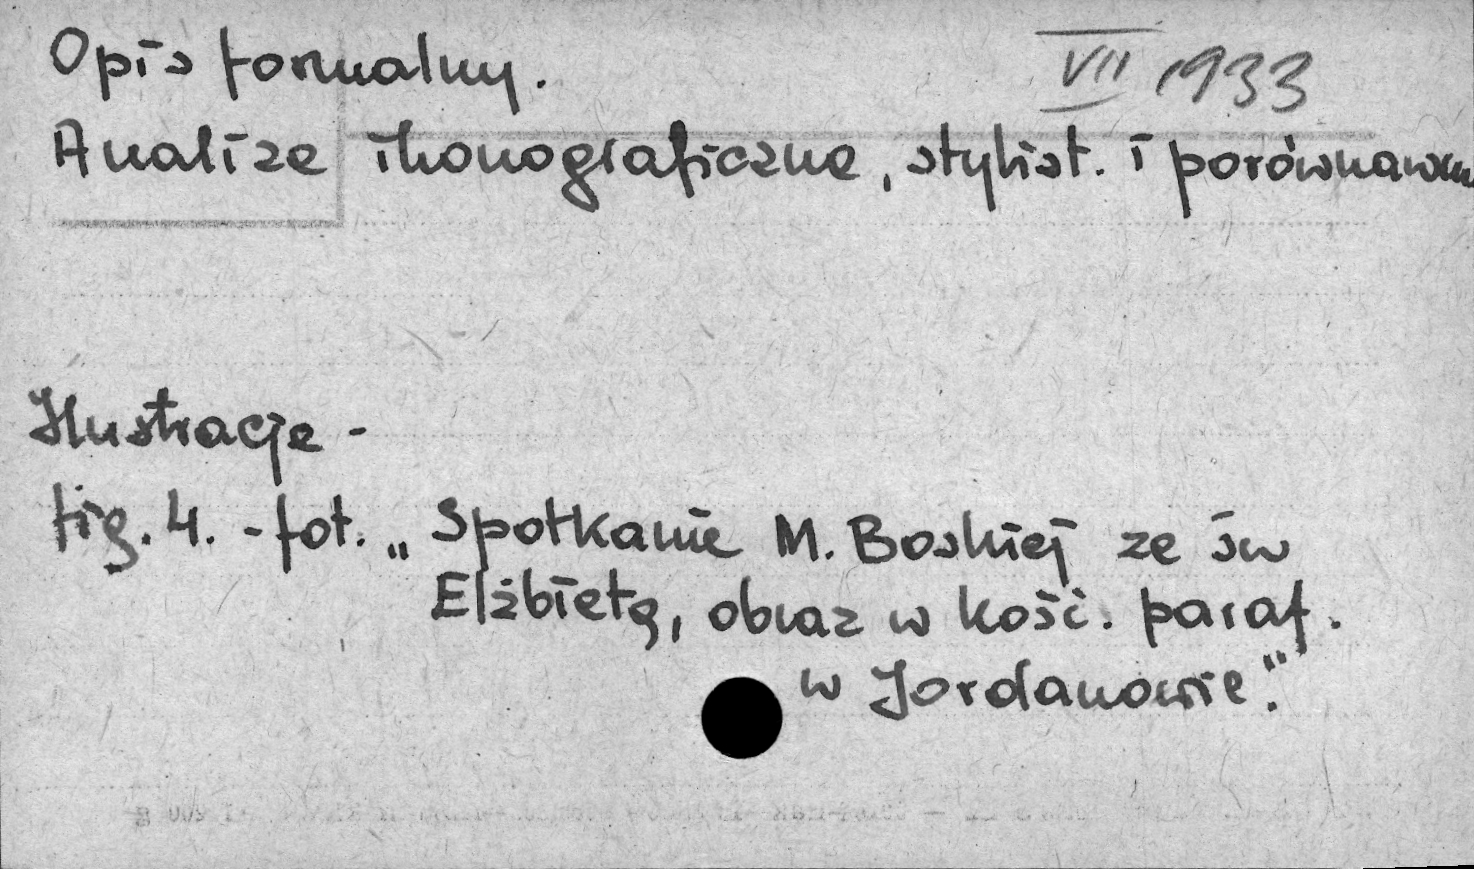 VII 1933
Opis formalny.
Analiza ikonograficzna, stylist. i porównawcza
Ilustracje -
fig. 4. - fot. „Spotkanie M. Boskiej ze św
Elżbietą, obraz w kość. paraf.
w Jordanowie".